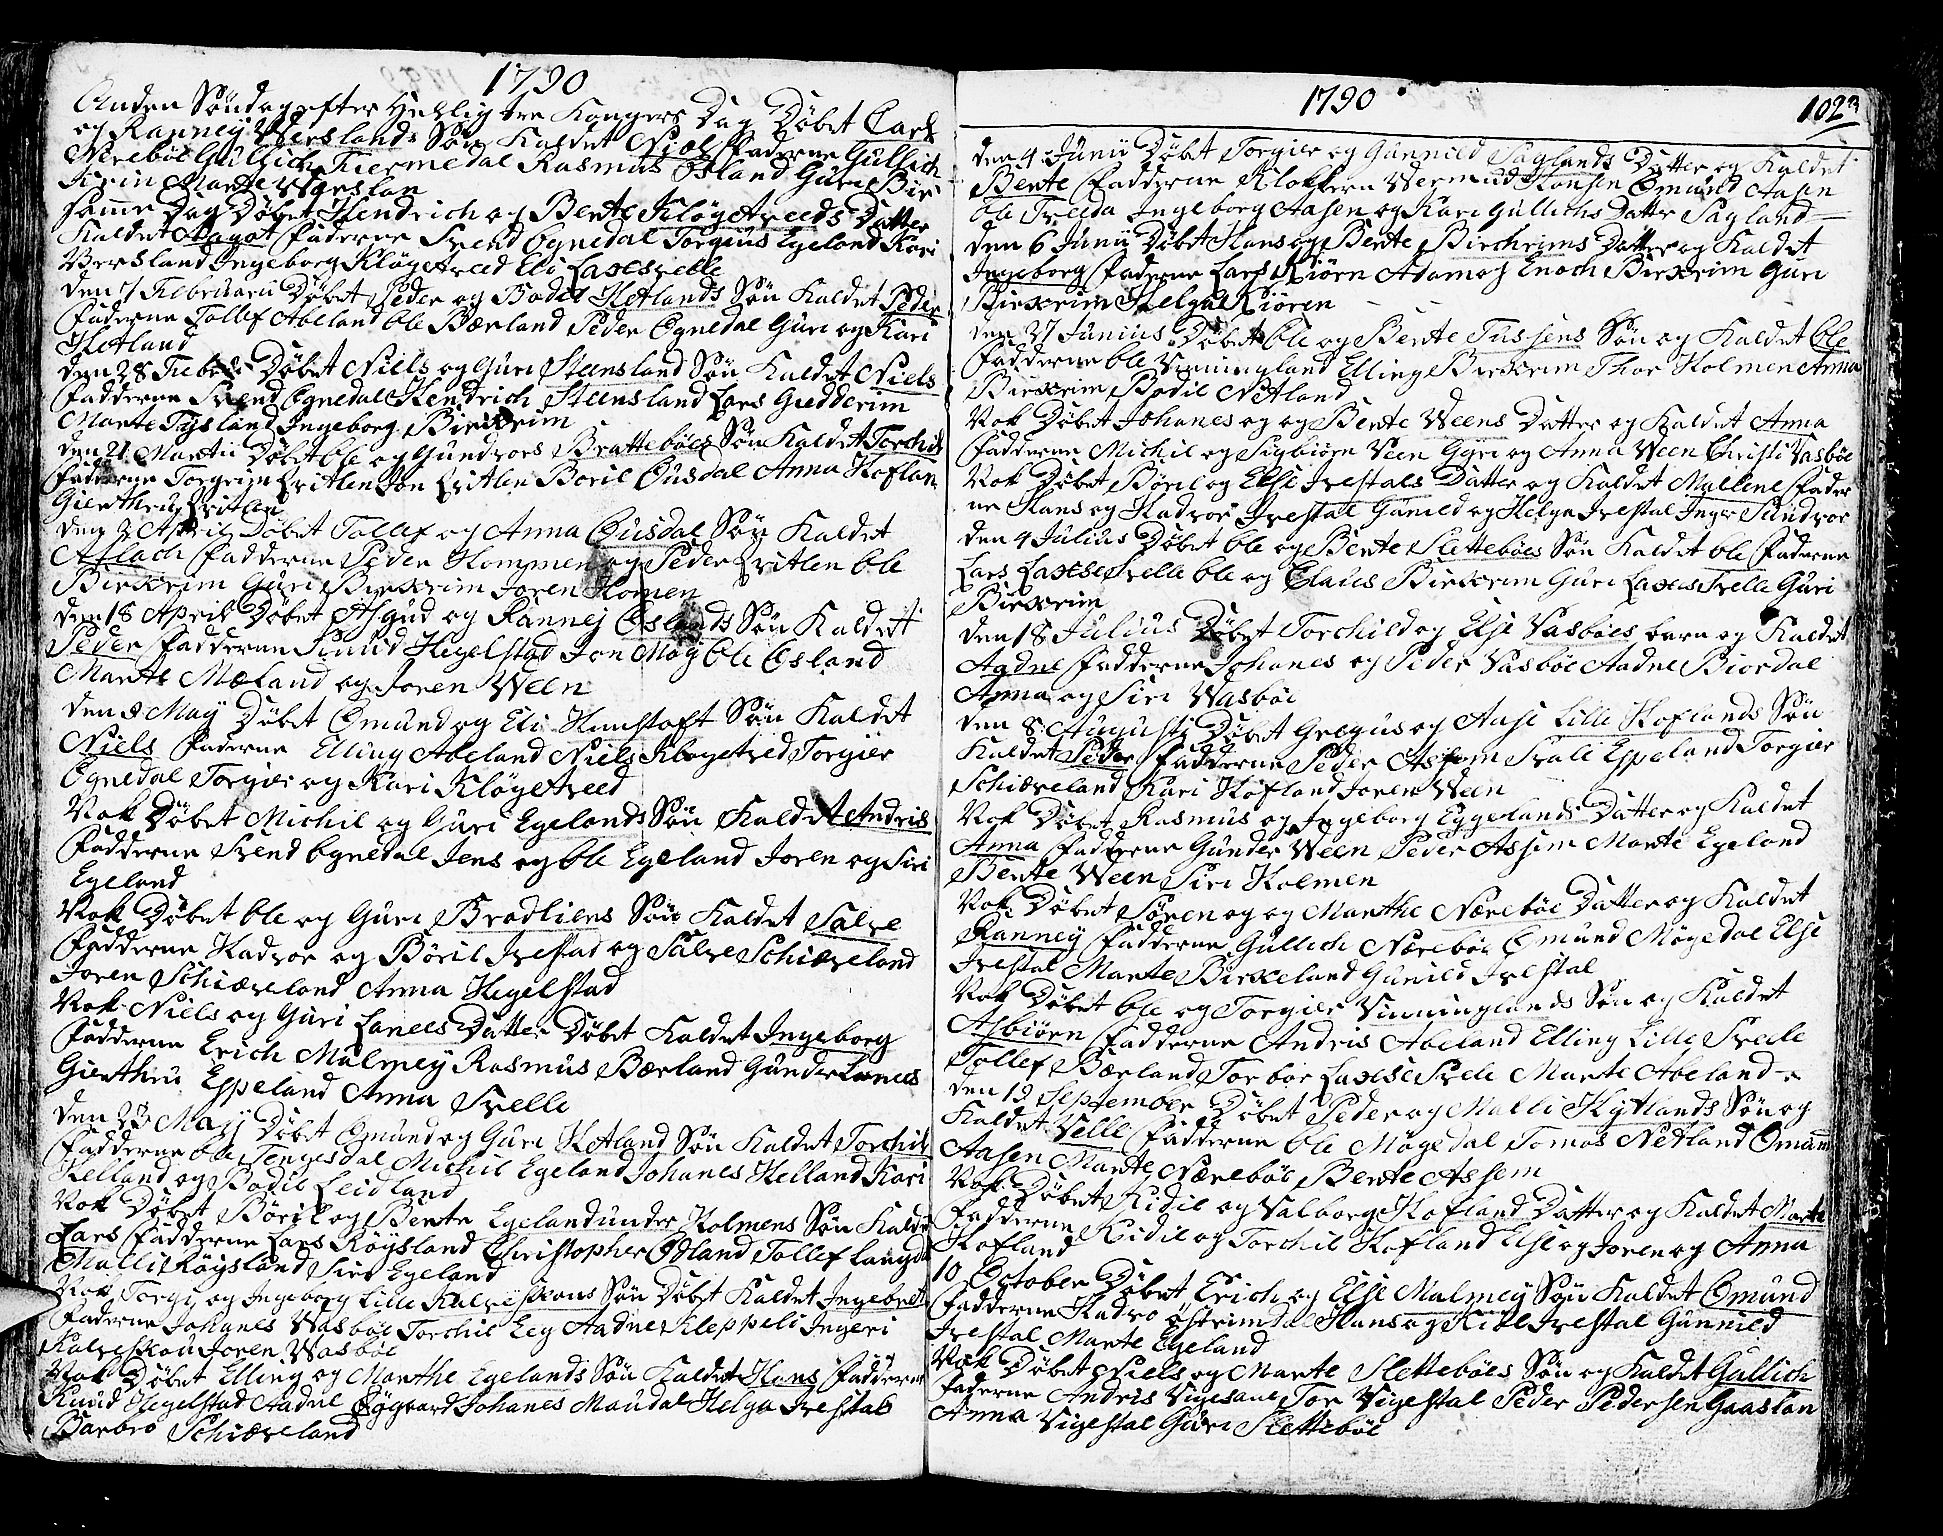 1790
Anden Søndag efter Hellig tre Kongers Dag Døbet Carl
og Ranney Werslands Søn Kaldet Niels Faderne Gullich
Nerebøe Gullich Tiermedal Rasmus Osland Guri Bir
Marte Werslan
samme Dag Døbet Hendrich og Bente Kløgetveeds Datter
Kaldet Aagot Faderne Svend Ognedal Torgius Egeland Kari
Versland Ingeborg Kløgetveed Eli Laxesvelle
den 7 Februarii Døbet Peder og Bodel Hetlands Søn Kaldet Peder
Faderne Tollef Abeland Ole Bærland Peder Ognedal Guri og Kari
Hetland
den 28 Febru Døbet Niels og Guri Steensland Søn Kaldet Niels
Fadderne Svend Ognedal Hendrich Steensland Lars Gudderim
Marte Tysland Ingeborg Birkrim
den 21 Martii Døbet Ole og Gundvors Brattebøes Søn Kaldet Torchil
Fadderne Torgrim Qvitlen Jon Qvitlen Boril Ousdal Anna Hoflan
Gierthru Qvitlen
den 2 April Døbet Tollef og Anna Ousdal Søn Kaldet
Aslach Fadderne Peder Hommen og Peder Qvitlen Ole
Birkrim Guri Birkrim Joren Homen
den 18 April Døbet Asgud og Rannej Oslands Søn Kaldet
Peder Fadderne Knud Hegelstad Jon Moy Ole Osland
Marte Mæland og Joren Ween
den 2 May Døbet Omund og Eli Hunstoft Søn Kaldet
Niels Faderne Elling Abeland Niels Kløgetved Torgier
Ognedal Torgier og Kari Kløgetveed
Nok Døbet Michil og Guri Egelands Søn Kaldet Andris
Fadderne Svend Ognedal Jens og Ole Egeland Joren og Siri
Egeland
Nok Døbet Ole og Guri Bradliens Søn Kaldet Salve
Fadderne Hadvor og Børil Ivestad og Salve Schiæveland
Joren Schiæveland Anna Hegelstad
Nok Niels og Guri Lanees Datter Døbet Kaldet Ingeborg
Fadderne Erich Malmey Rasmus Bærland Gunder Lanees
Gierthru Eppeland Anna Svelle
den 23 Maij Døbet Omund og Guri Hetland Søn Kaldet Torchil
Fadderne Ole Tengesdal Michil Egeland Johanes Helland Kari
Helland og Bodil Leidland
Nok Døbet Børil og Bente Egelandunder Holmens Søn Kaldet
Lars Fadderne Lars Røysland Christopher Odland Tollef Langd
Malli Røysland Siri Egeland
Nok Torgy og Ingeborg Lille Kalveskous Søn Døbet Kaldet Ingebret
Faderne Johanes Wasbøe Torchil Eeg Aadne Kleppeli Ingeri
Kalveskou Joren Wasbøe
Nok Døbet Elling og Marthe Egelands Søn Kaldet Hans Fadderne
Knud Hegelstad Aadne Røgaard Johanes Maudal Helga Ivestad
Barbro Schiæveland
1790
102
den 4 Junii Døbt Torgier og Gunnild Saglands Datter og Kaldet
Bente Fadderne Klokkern Wermud Hansen Omund Aasen
Ole Treeda Ingeborg Aasen og Kari Gullichs Datter Sagland
den 6 Junii Døbet Hans og Bente Birchrims Datter og Kaldet
Ingeborg Fadderne Lars Kiørn Adamoj Enoch Birkrim Guri
Birkrim Helga Kiøren
den 27 Junius Døbet Ole og Bente Tussens Søn og Kaldet Ole
Fadderne Ole Vinningland Elling Birkrim Thor Holmen Anna
Birkrim Bodil Netland
Nok Døbet Johanes og og Bente Weens Datter og Kaldet Anna
Fadderne Michil og Sigbiørn Veen Gyri og Anna Ween Christi Vasbøe
Nok Døbet Børil og Else Ivestals Datter og Kaldet Mallene Fader
ne Hans og Hadvor Ivestal Gunild og Helga Ivestal Inger Sundvor
den 4 Julius Døbet Ole og Bente Slettebøes Søn Kaldet Ole Faderne
Lars Laxesvelle Ole og Claus Birkrim Guri Laxesvelle Guri
Birkrim
den 18 Julius Døbet Torchild og Else Vasbøes barn og Kaldet
Aadne Fadderne Johanes og Peder Vasbøe Aadne Biordal
Anna og Siri Wasbøe
den 8 Augusti Døbet Gregus og Aase Lille Hoflands Søn
Kaldet Peder Fadderne Peder Assom Svale Eppeland Torgier
Schiæveland Kari Hofland Joren Ween
Nok Døbet Rasmus og Ingeborg Eggelands Datter og Kaldet
Anna Fadderne Gunder Ween Peder Assem Marte Egeland
Bente Ween Siri Holmen
Nok Døbet Søren og og Marthe Nærebøe Datter og Kaldet
Ranney Fadderne Gullich Nærebøe Omund Møgedal Else
Ivestal Marte Birkeland Gunild Ivestal
Nok Døbet Ole og Torgier Vinninglands Søn og Kaldet
Asbiørn Fadderne Andris Abeland Elling Lille Svele
Tollef Bærland Torbor Laxesvele Marte Abeland
den 19 September Døbet Peder og Malli Hytlands Søn og
Kaldet Velle Fadderne Ole Møgedal Tomas Netland Omun
Aasen Marte Nærebøe Bente Assem
Nok Døbet Kidil og Valborg Hofland Datter og Kaldet Marte
Fadderne Kidil og Torchil Hofland Else og Joren og Anna
Hofland
10 October Døbet Erich og Else Malmey Søn Kaldet Omund
Fadderne Hadvo Østrimdal Hans og Kiel Ivestal Gunnild
Ivestal Marte Egeland
Nok Døbet Niels og Marte Slettebøes Søn og Kaldet Gullich
Faderne Andris Vigesaae Tor Vigestal Peder Pedersen Gaaslan
Anna Vigestal Guri Slettebøe